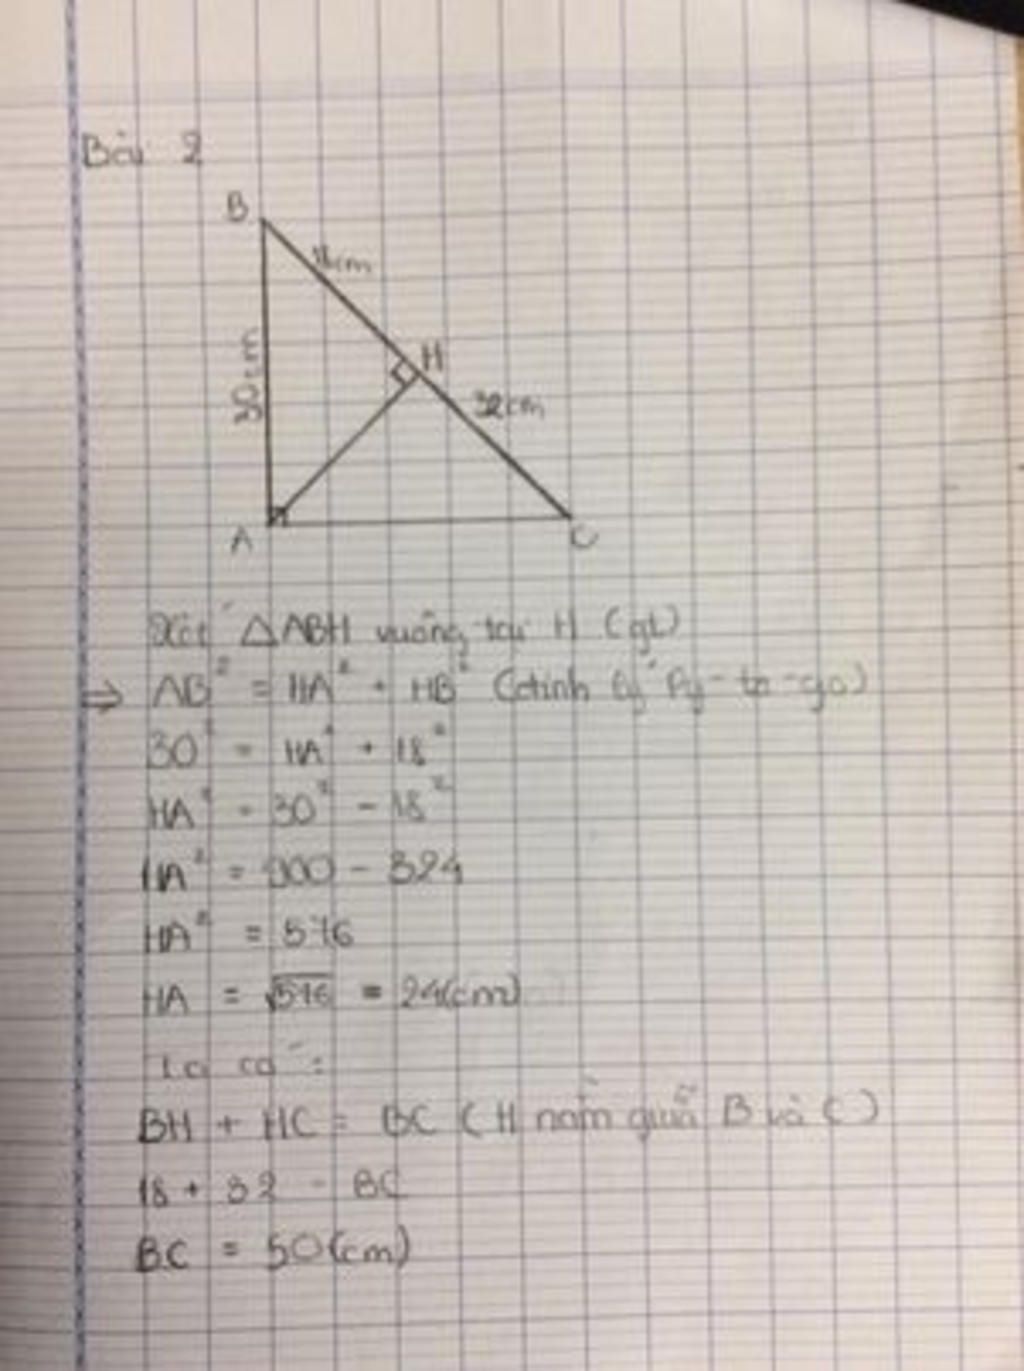 Bài 2
B
18cm
H
30cm
32cm
A
C
Xét △ABH vuông tại H (gt)
⇒ AB² = HA² + HB² (định lý Py-ta-go)
30² = HA² + 18²
HA² = 30² - 18²
HA² = 900 - 324
HA² = 576
HA = √576 = 24(cm)
Lại có :
BH + HC = BC (H nằm giữa B và C)
18 + 32 = BC
BC = 50(cm)